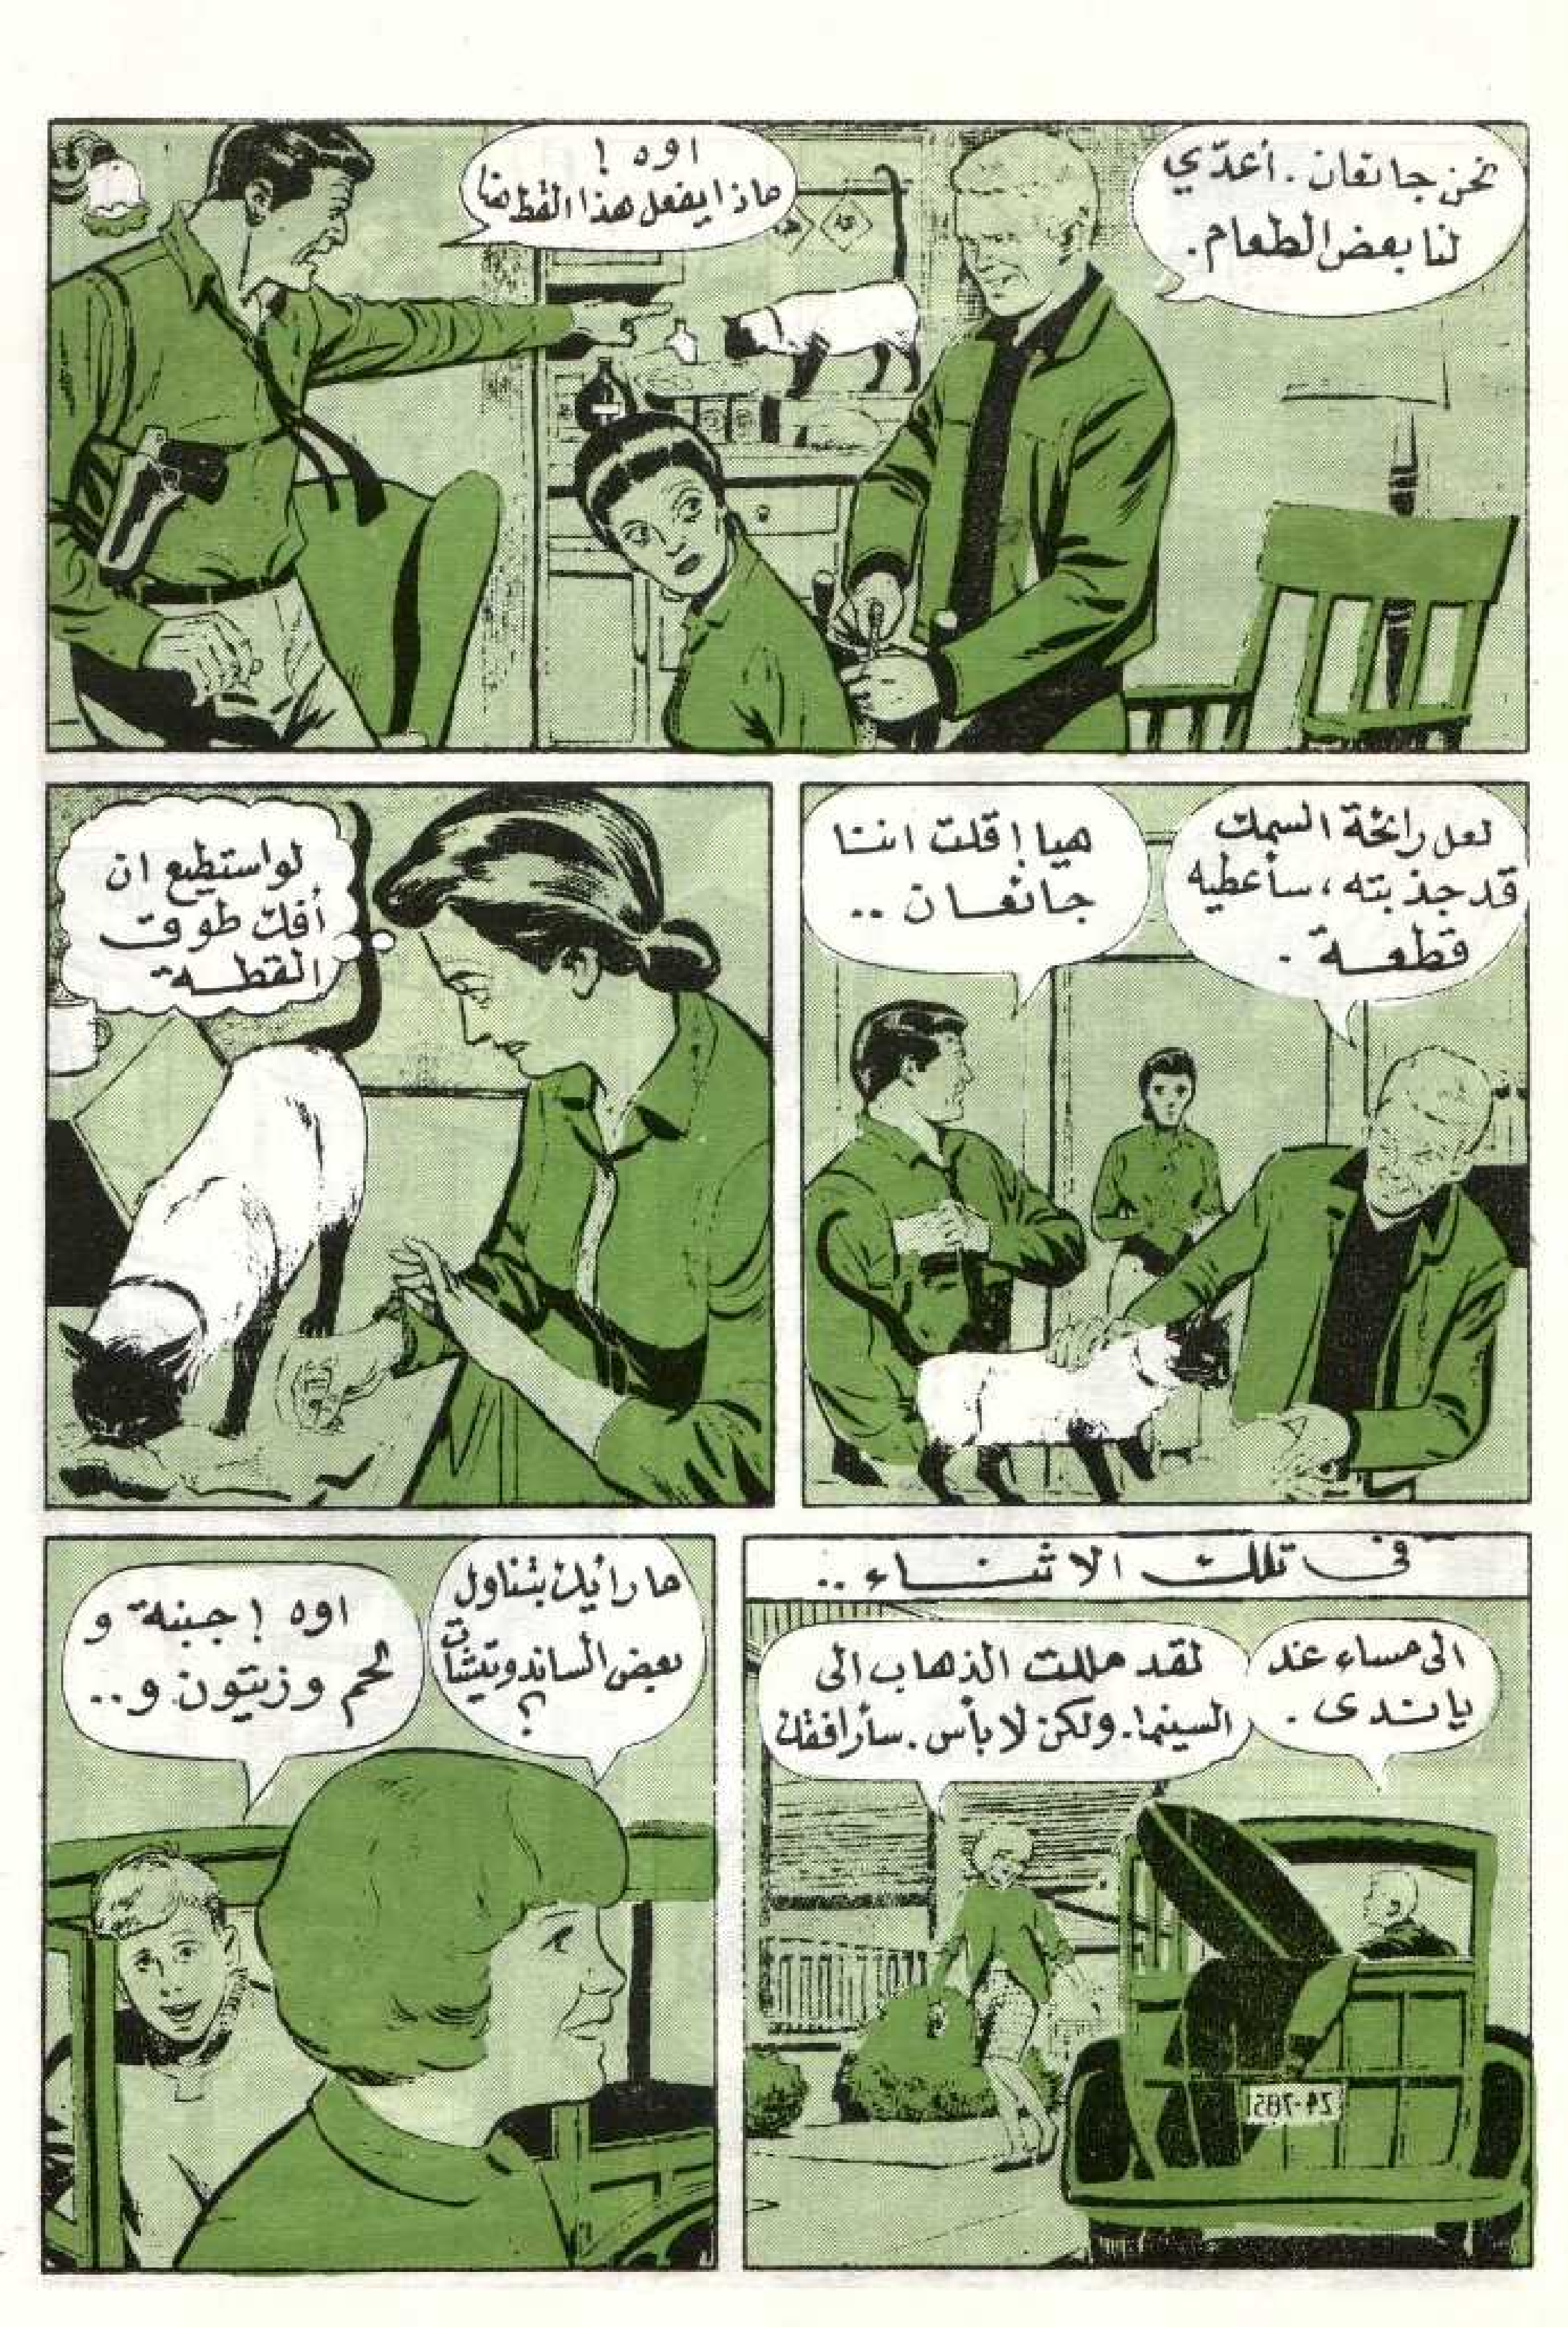 نحن جائعان. أعدّي
لنا بعض الطعام.
اوه !
ماذا يفعل هذا القط هنا
لعل رائحة السمك
قد جذبته، سأعطيه
قطعة.
هيا! قلت اننا
جائعان ..
لو استطيع ان
أفك طوق
القطة
فى تلك الاثناء ..
الى مساء غد
يا ساندى.
لقد مللت الذهاب الى
السينما. ولكن لا بأس. سأرافقك
ما رأيك بتناول
بعض الساندوتيشات
؟
اوه ! جبنة و
لحم وزيتون و..